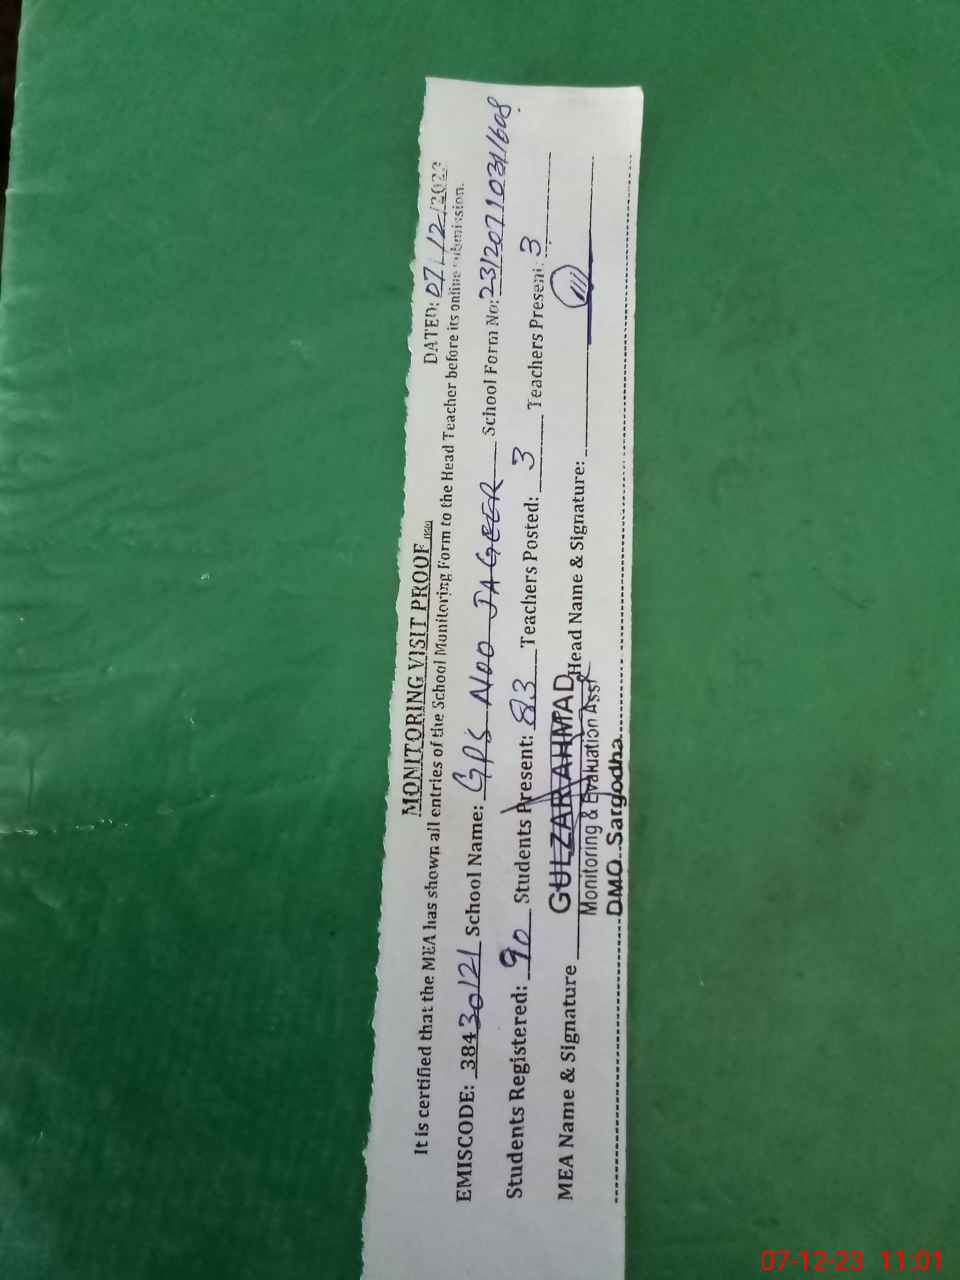 MONITORING VISIT PROOF
DATED: 07/12/2023
It is certified that the MEA has shown all entries of the School Monitoring Form to the Head Teacher before its online submission.
EMISCODE: 38430121 School Name: GPS NOO JAGEER School Form No: 23120710311608
Students Registered: 90 Students Present: 83 Teachers Posted: 3 Teachers Present: 3
MEA Name & Signature GULZAR AHMAD Head Name & Signature:
Monitoring & Evaluation Asst
DMO Sargodha
07-12-23 11:01